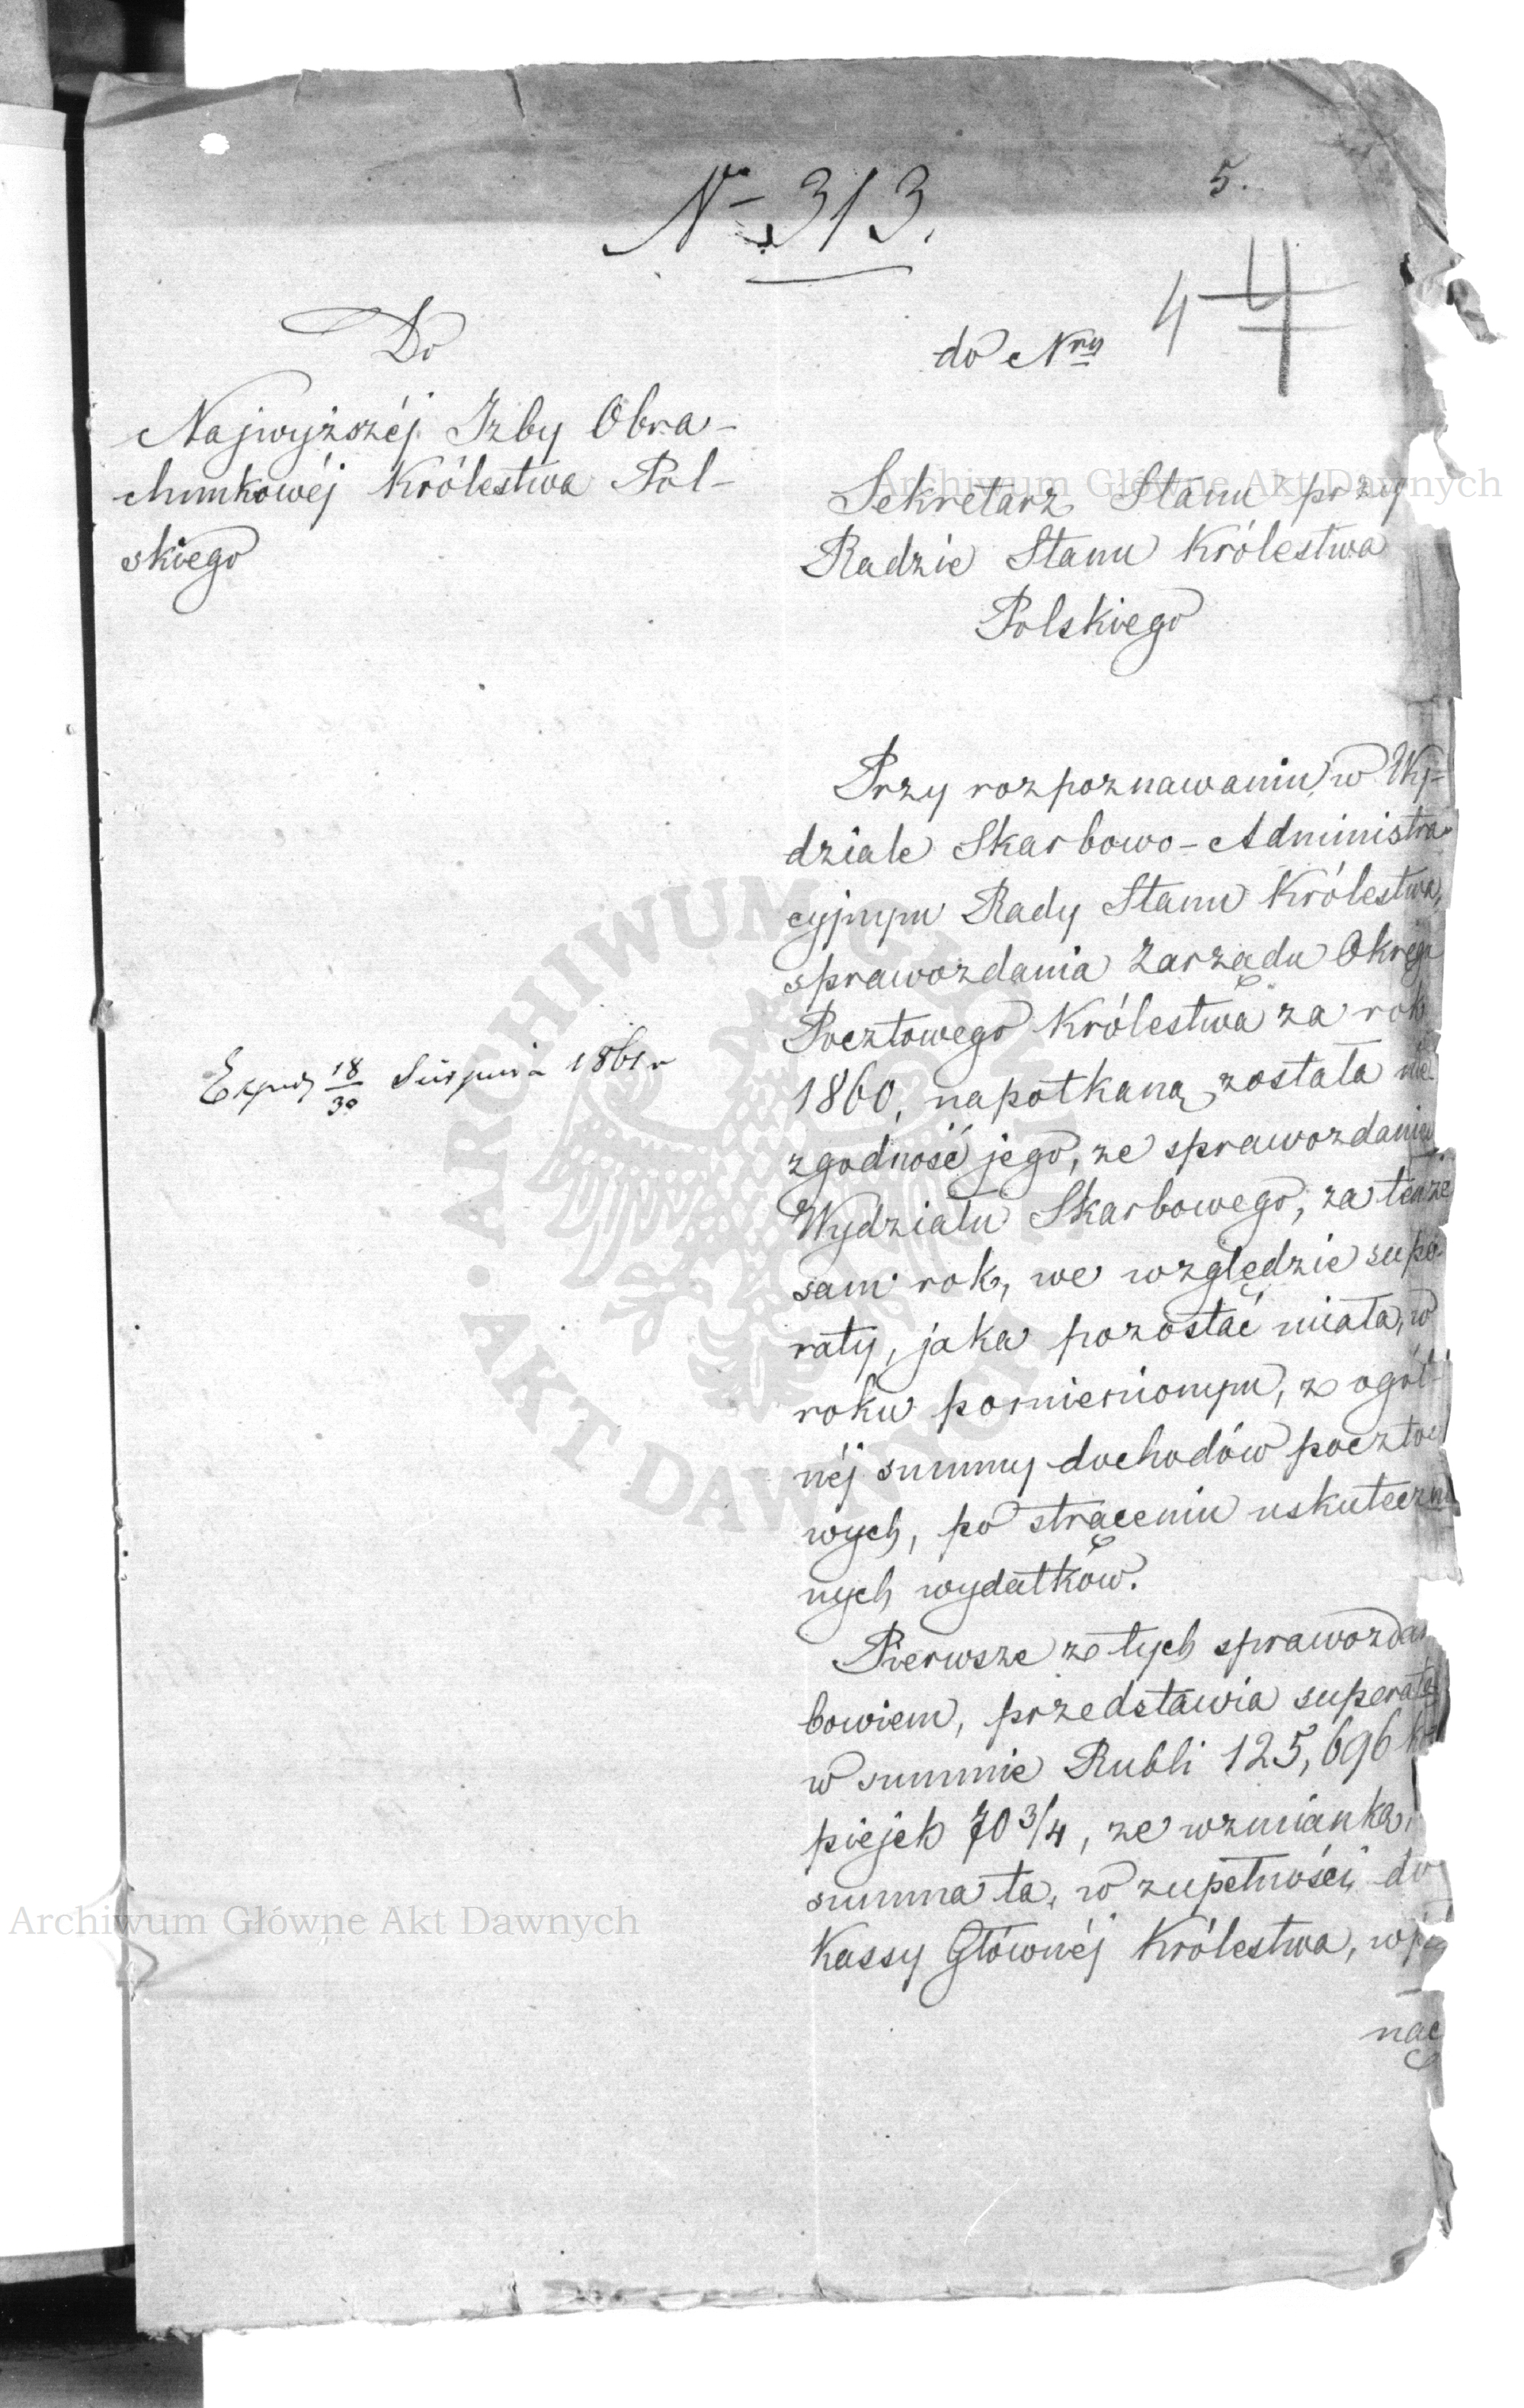 No 313.
5.
4 4
Do
Najwyższéj Izby Obra-
chunkowéj Królestwa Pol-
skiego
do Nru
Sekretarz Stanu przy
Radzie Stanu Królestwa
Polskiego
Przy rozpoznawaniu, w Wy-
dziale Skarbowo-Administra-
cyjnym Rady Stanu Królestwa,
sprawozdania Zarządu Okręgu
Pocztowego Królestwa za rok
1860, napotkaną została nie-
zgodność jego, ze sprawozdaniem
Wydziału Skarbowego, za tenże
sam rok, we względzie supe-
raty, jaka pozostać miała, w
roku pomienionym, z ogól-
néj summy dochodów poczto-
wych, po strąceniu uskutecznio-
nych wydatków.
Pierwsze z tych sprawozdań
bowiem, przedstawia superatę
w summie Rubli 125,696 ko-
piejek 70 3/4, ze wzmianką,
summa ta, w zupełności, do
Kassy Głównéj Królestwa, wpły-
nąć
Exped 18/30 Sierpnia 1861 r
Archiwum Główne Akt Dawnych
Archiwum Główne Akt Dawnych
ARCHIWUM GŁÓWNE AKT DAWNYCH